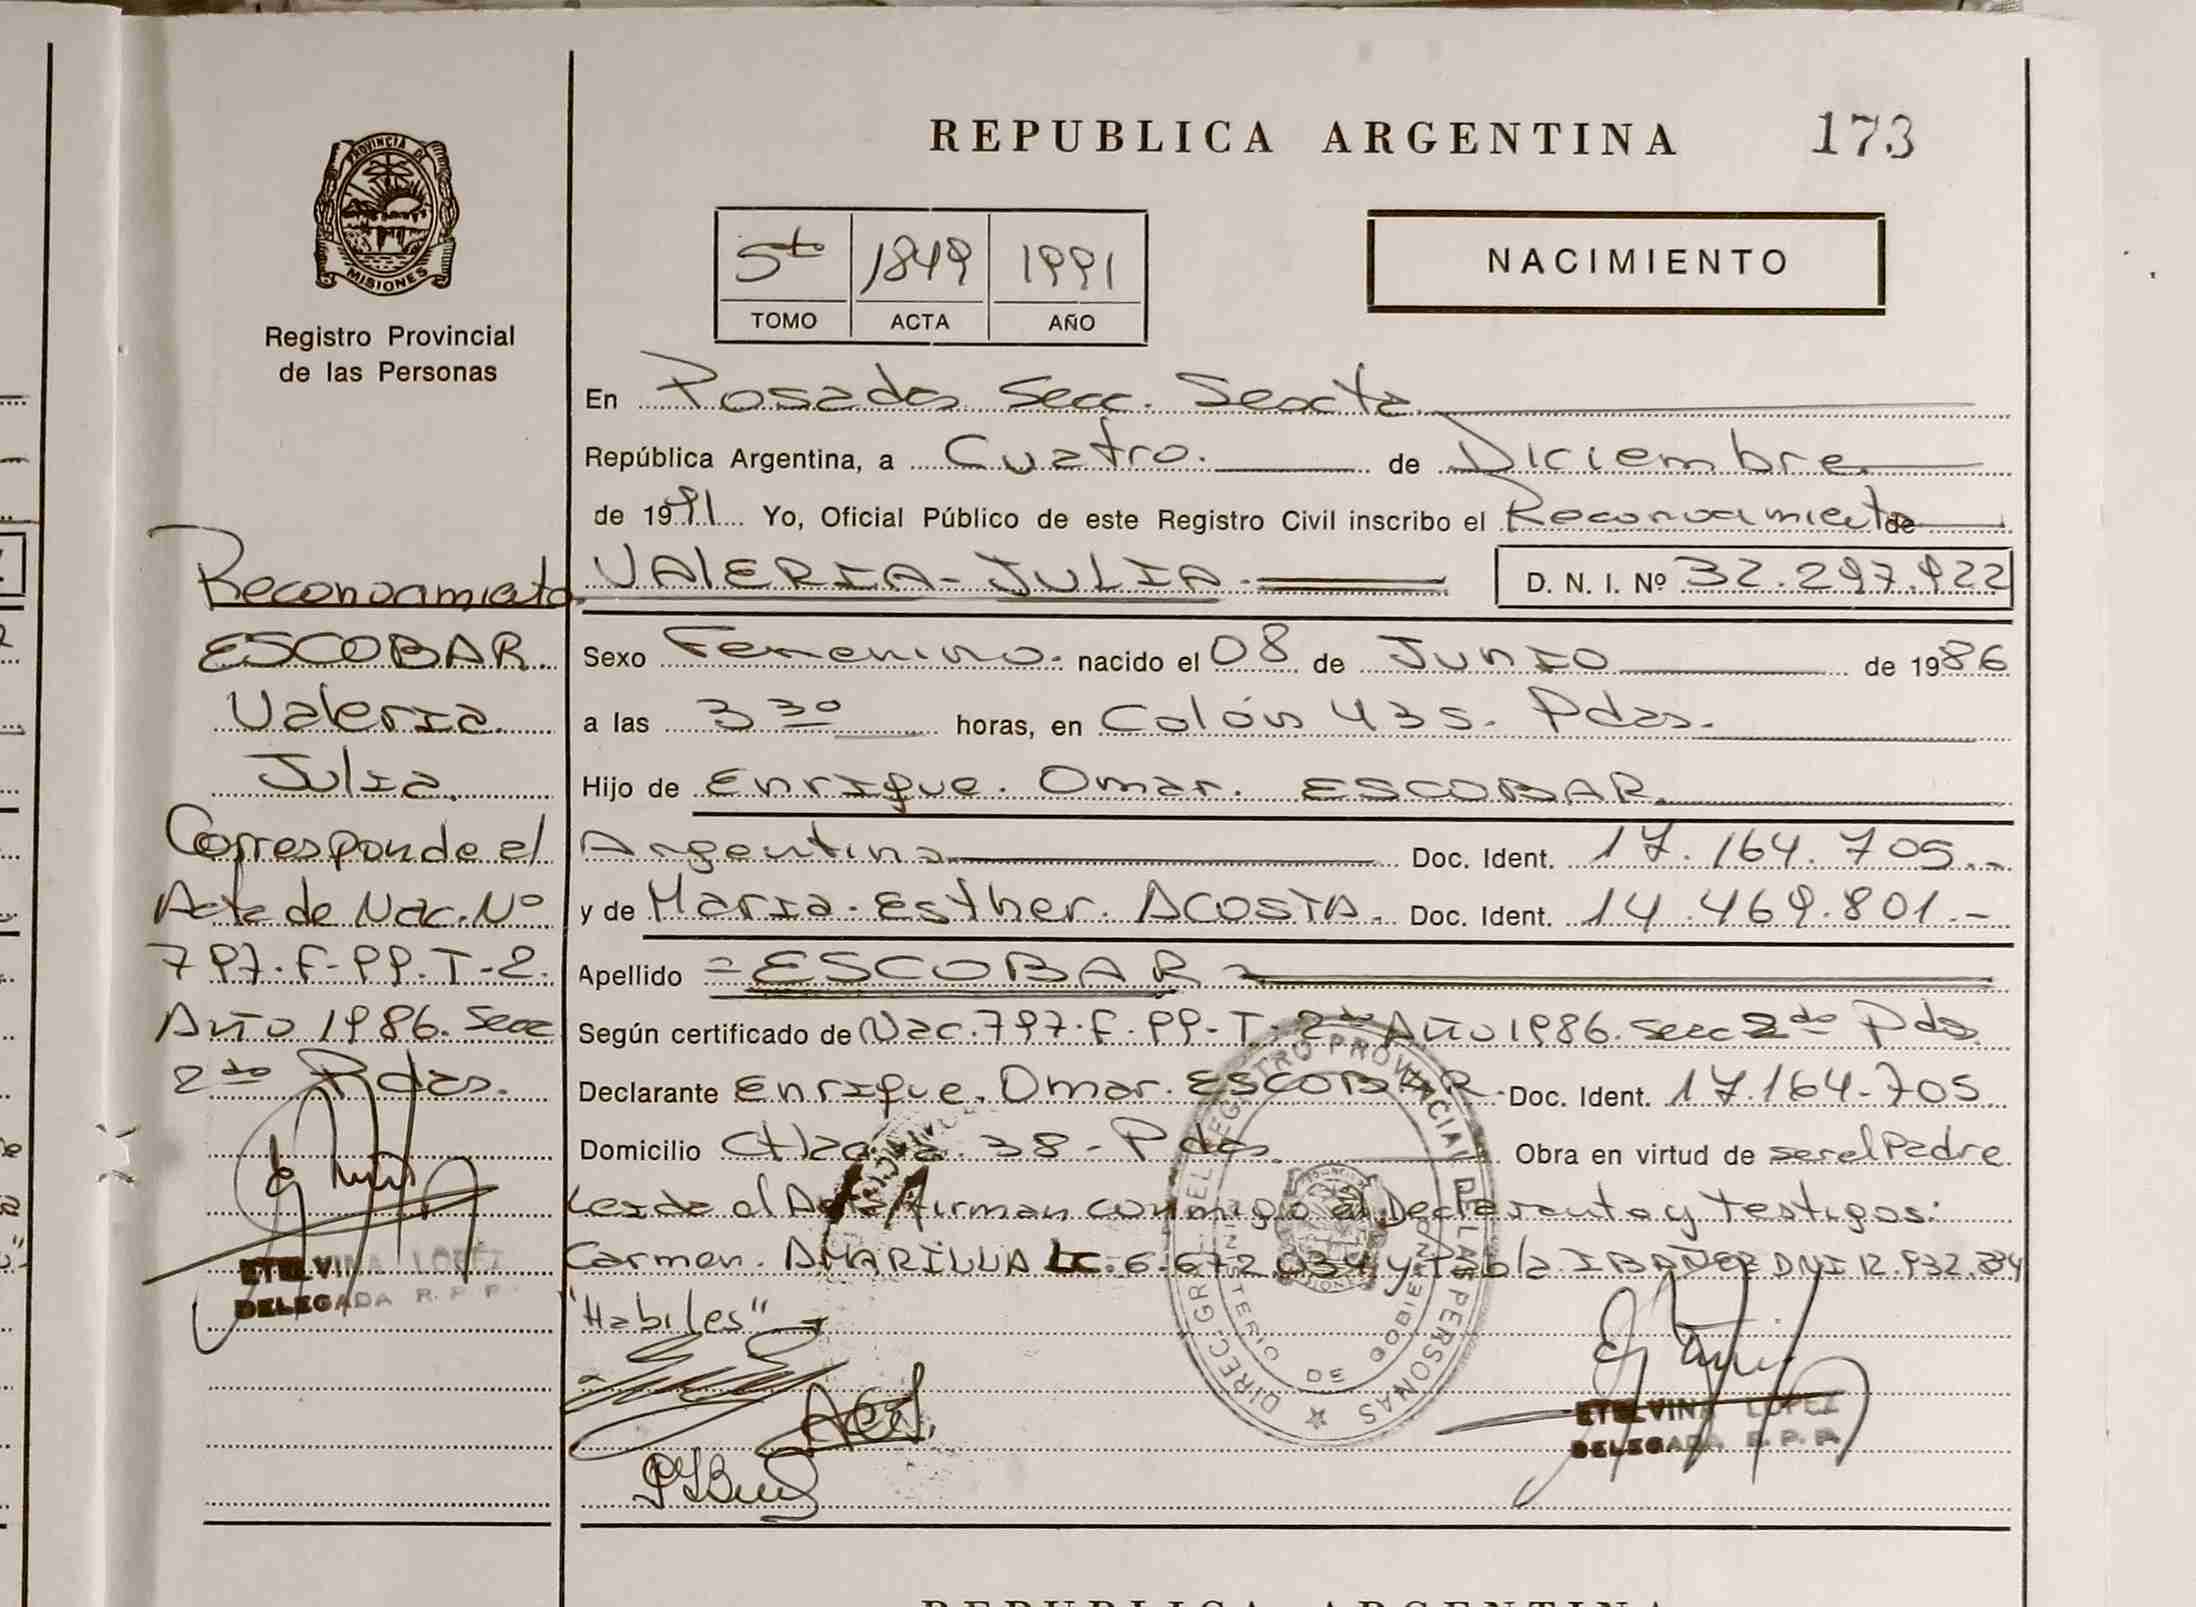 REPUBLICA ARGENTINA 173
PROVINCIA DE
MISIONES
Registro Provincial
de las Personas
5to 1849 1991
TOMO ACTA AÑO
NACIMIENTO
En Posadas Secc. Sexta
República Argentina, a Cuatro. de Diciembre
de 1991 Yo, Oficial Público de este Registro Civil inscribo el Reconocimiento de
VALERIA-JULIA. D. N. I. Nº 32.297.922
Sexo Femenino. nacido el 08 de Junio de 1986
a las 3 30 horas, en Colón 435. Pdas.
Hijo de Enrique. Omar. ESCOBAR.
Argentina Doc. Ident. 17.164.705.-
y de Maria. Esther. ACOSTA. Doc. Ident. 14.469.801.-
Apellido =ESCOBAR=
Según certificado de Nac. 797. F. 99. T. 2do Año 1986. Secc 2do Pdas.
Declarante Enrique. Omar. ESCOBAR. Doc. Ident. 17.164.705
Domicilio 38 - Pdas. Obra en virtud de ser el Padre
Leida el Acta firman conmigo el Declarante y testigos:
Carmen. AMARILLA LC. 6.672.034 y IBAÑEZ DNI 12.932.
"Habiles"
ETELVINA LOPEZ
DELEGADA R. P. P.
Reconocimiento
ESCOBAR.
Valeria.
Julia.
Corresponde al
Acta de Nac. Nº
797. F-99. T-2.
Año 1986. Secc
2do Pdas.
ETELVINA LOPEZ
DELEGADA R. P. P.
DIREC. GRAL. DEL REGISTRO PROVINCIAL DE LAS PERSONAS
MINISTERIO DE GOBIERNO
REPUBLICA ARGENTINA